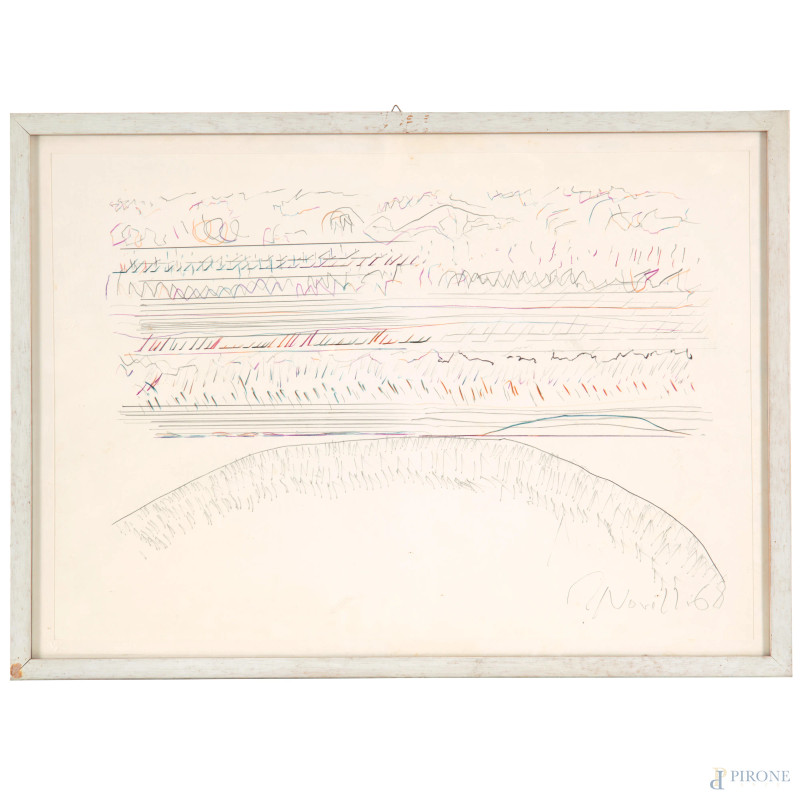 Novelli 68
PIRONE